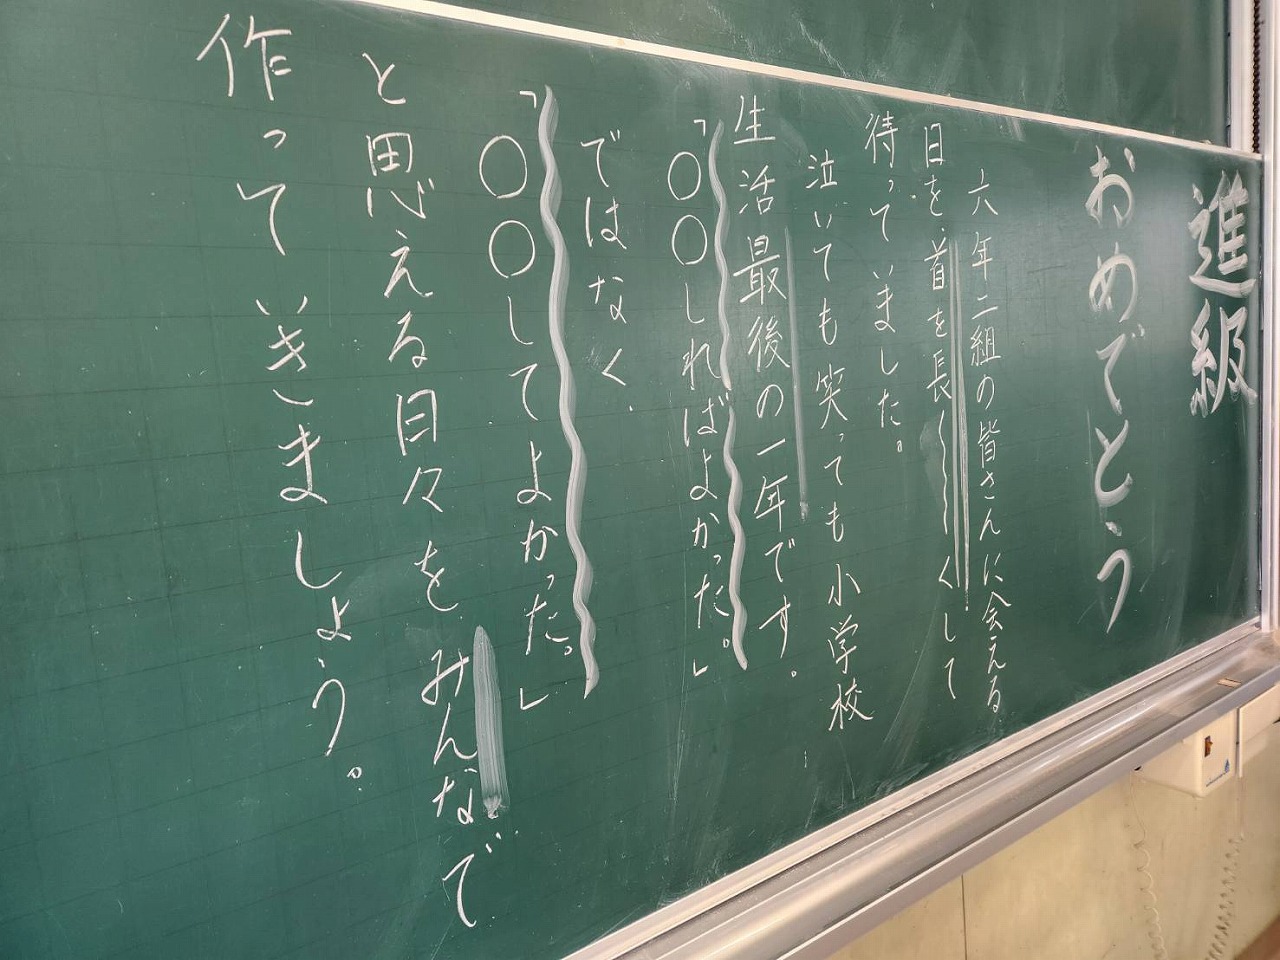 進級
おめでとう
六年二組の皆さんに会える
日を、首を長〜〜〜くして
待っていました。
泣いても笑っても小学校
生活最後の一年です。
「○○しればよかった。」
ではなく、
「○○してよかった。」
と思える日々を、みんなで
作っていきましょう。